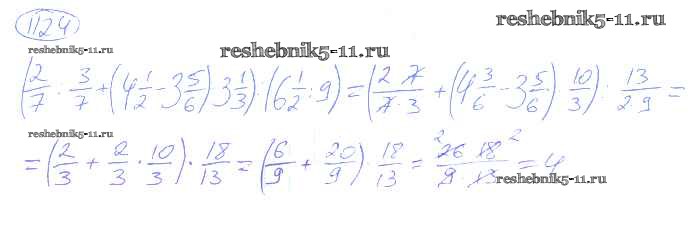 1124
reshebnik5-11.ru
reshebnik5-11.ru
reshebnik5-11.ru
(2/7 : 3/7 + (4 1/2 - 3 5/6) 3 1/3) : (6 1/2 : 9) = (2·7/7·3 + (4 3/6 - 3 5/6) · 10/3) : 13/2·9 =
reshebnik5-11.ru
= (2/3 + 2/3 · 10/3) · 18/13 = (6/9 + 20/9) · 18/13 = ²26 18²/9 · 13 = 4
reshebnik5-11.ru